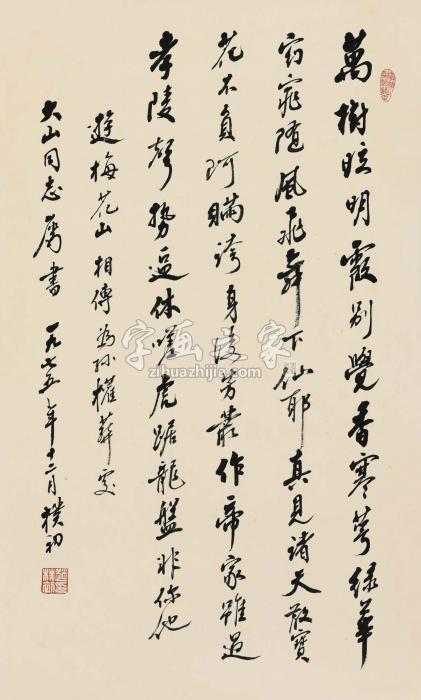 萬樹眩明霞別覺香寒萼綠華
窈窕隨風飛舞下仙耶真見諸天散寶
花不負阿瞞誇身後芳叢作帝家雖過
孝陵聲勢逼休嗟虎踞龍盤非你他
遊梅花山相傳為孫權葬處
大山同志属書 一九七五年十二月樸初
字画之家
zihuazhijia.com